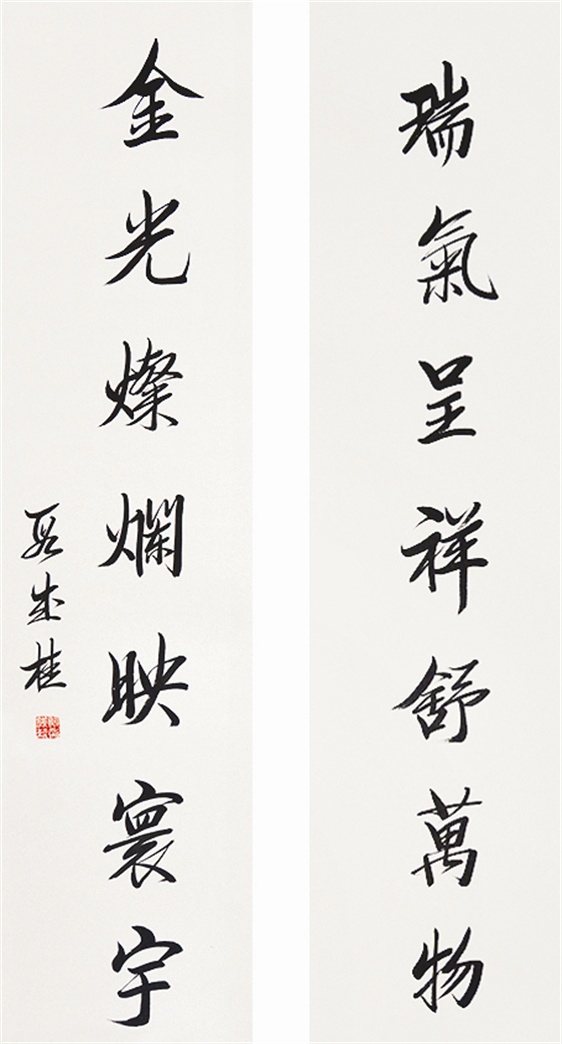 瑞氣呈祥舒萬物
金光燦爛映寰宇
段成桂